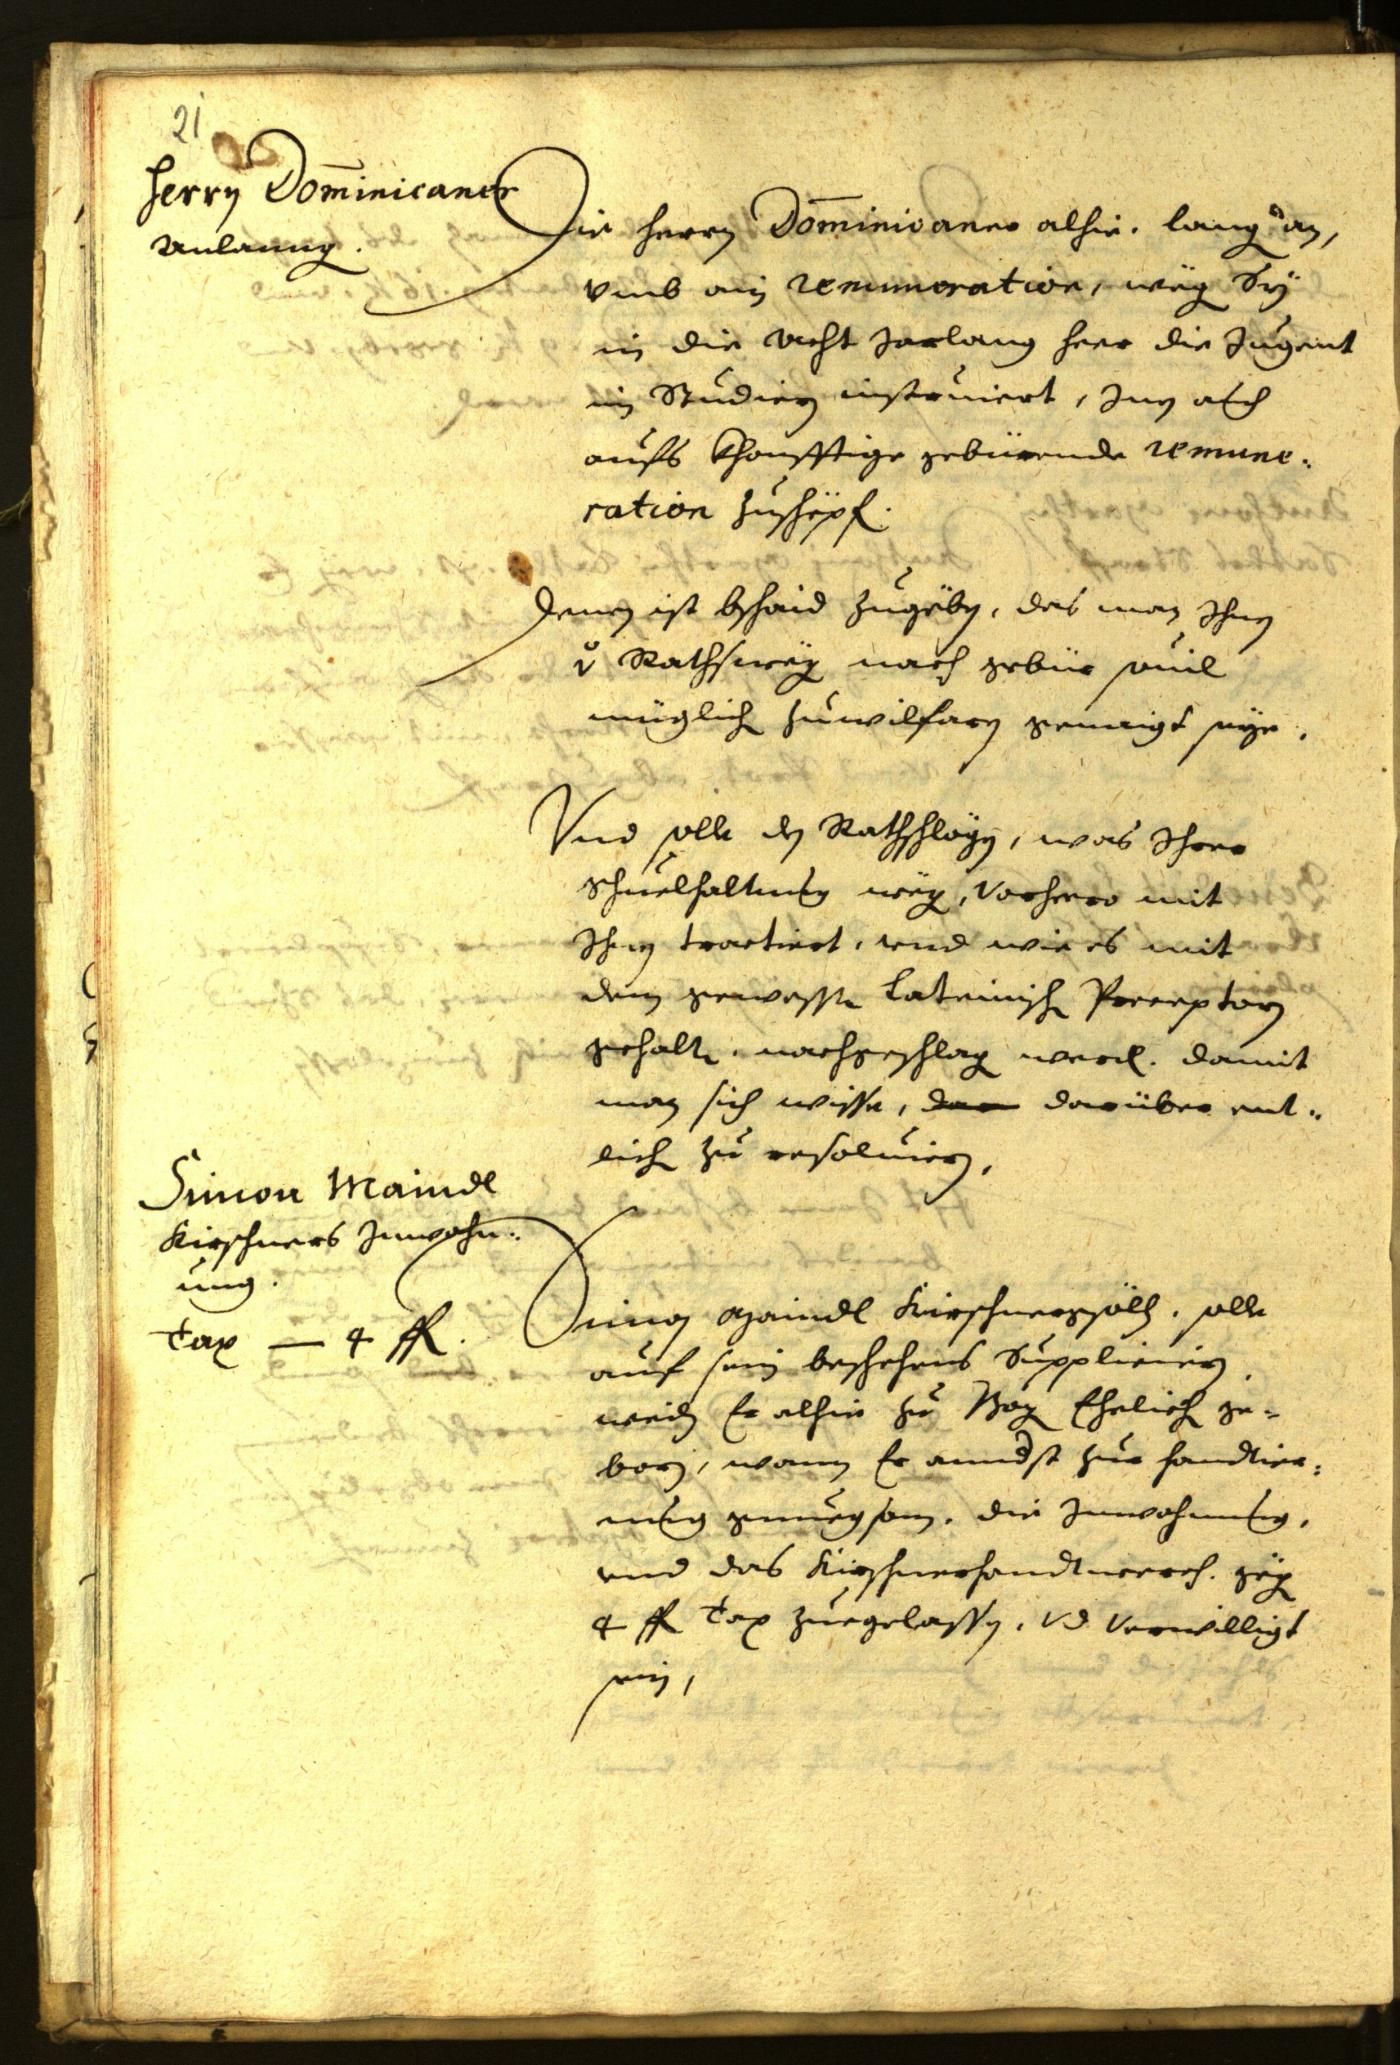 21
Herrn Dom̄inicaner
anlanng.
Die herrn Dom̄inicaner alhie. lang an,
vmb ain remuneration, weg Sy
in die acht Jarlang heer die Jugent
in Studien instruiert, Inen auch
aufs Khonfftige gebürende remune:
ration zuschöpf.
Denen ist bschaid zugeben, das man Ihnen
v Rathsweg nach gebür souil
müglich zuwilfarn genaigt seye.
Vnd solle den Rathschlägen, was Ihrer
Schuelhaltung weg, Vorhero mit
Ihnen tractiert, vnd wie es mit
dem gewessten Lateinisch Preceptorn
gehalten. nachgeschlag werd. damit
man sich wisse, darüber ent:
lich zu resoluiern.
Simon Maindl
Kirschners Inwohn:
ung.
Tax — 4 fl.
Simon Maindl Kirschnergsöll, solle
auf sein beschehens Suppliciern,
weiln Er alhie zu Boz Ehelich ge=
born, wann Er annderst zur handtier:
ung genuegsam, die Inwohnung,
vnd das Kirschnerhandtwerch. geg
4 fl Tax zuegelassen, Vd Verwilligt
sein,